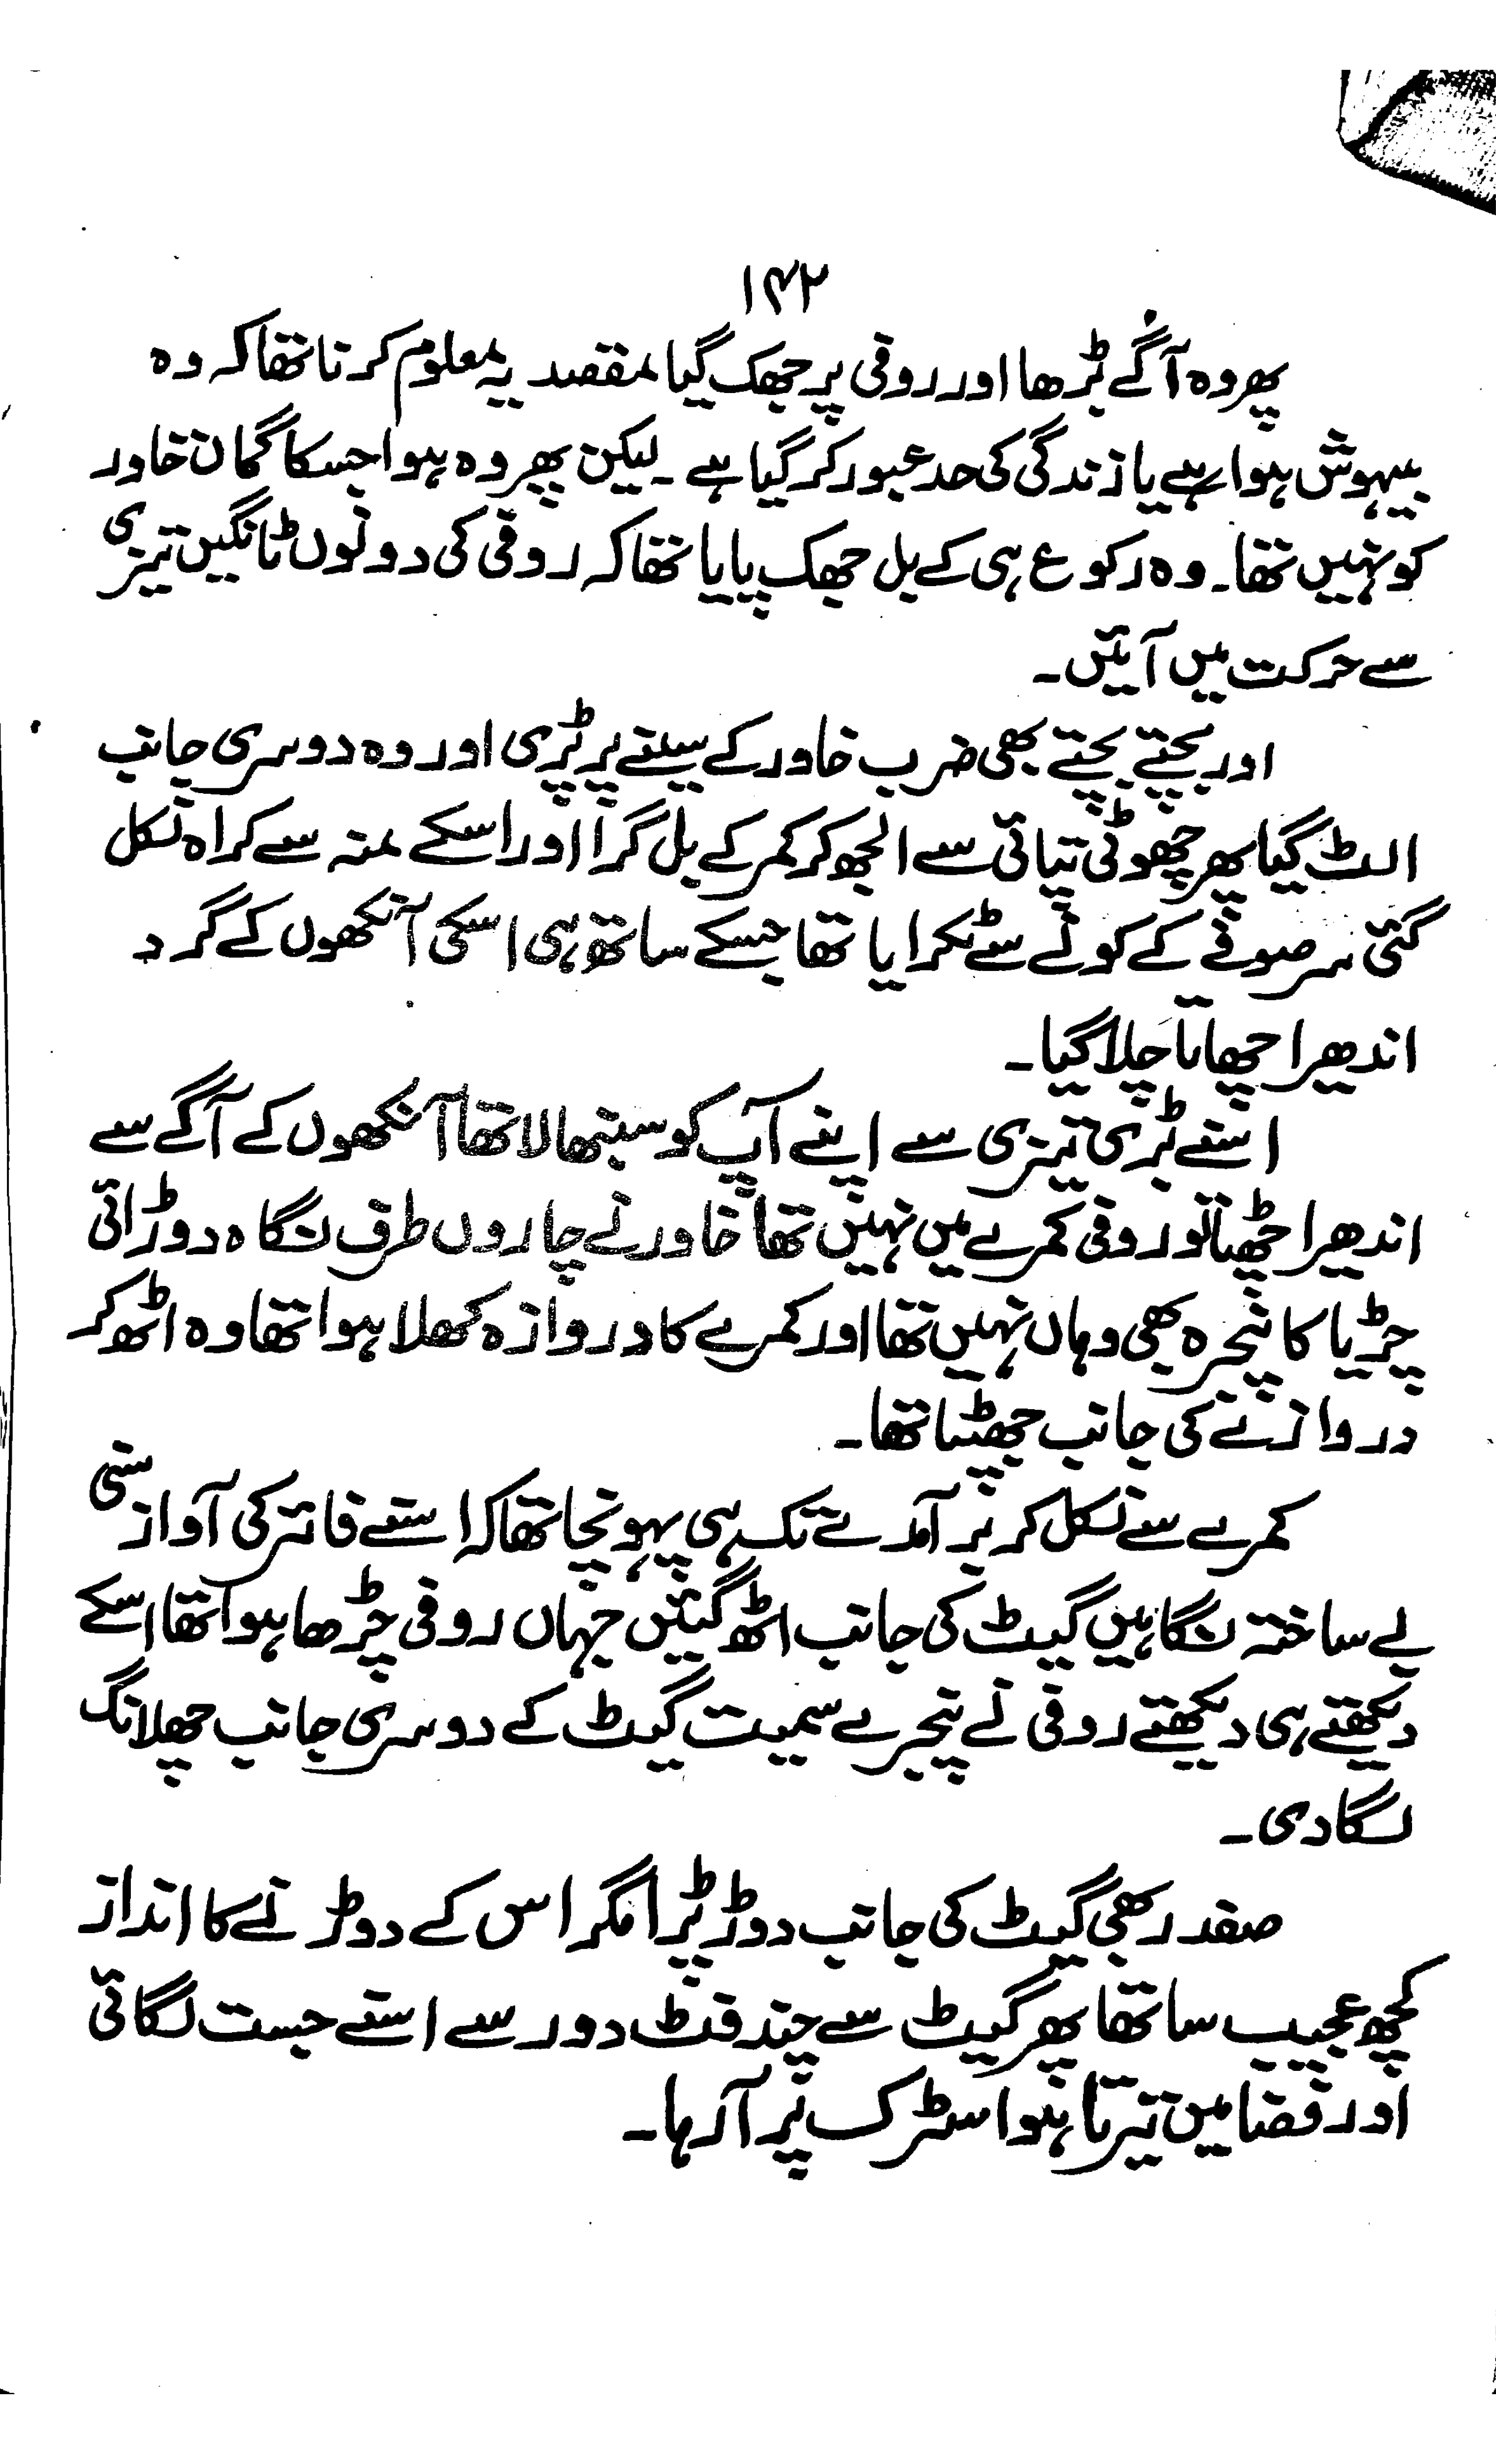 ۱۴۲
پھر وہ آگے بڑھا اور روفی پر جھک گیا مقصد یہ معلوم کرنا تھا کہ وہ
بیہوش ہوا ہے یا زندگی کی حد عبور کر گیا ہے ۔ لیکن پھر وہ ہوا جسکا گمان خاور
کو نہیں تھا ۔ وہ رکوع ہی کے بل جھک پایا تھا کہ روفی کی دونوں ٹانگیں تیزی
سے حرکت میں آئیں ۔
اور بچتے بچتے بھی ضرب خاور کے سینے پر پڑی اور وہ دوسری جانب
الٹ گیا پھر چھوٹی تپائی سے الجھ کر کمر کے بل گرا اور اسکے منہ سے کراہ نکل
گئی سر صوفے کے کونے سے ٹکرایا تھا جسکے ساتھ ہی اسکی آنکھوں کے گرد
اندھیرا چھاتا چلا گیا ۔
اسنے بڑی تیزی سے اپنے آپ کو سنبھالا تھا آنکھوں کے آگے سے
اندھیرا چھٹا تو روفی کمرے میں نہیں تھا خاور نے چاروں طرف نگاہ دوڑائی
چڑیا کا پنجرہ بھی وہاں نہیں تھا اور کمرے کا دروازہ کھلا ہوا تھا وہ اٹھ کر
دروازے کی جانب جھپٹا تھا ۔
کمرے سے نکل کر برآمدے تک ہی پہونچا تھا کہ اسنے فائر کی آواز سنی
بے ساختہ نگاہیں گیٹ کی جانب اٹھ گئیں جہاں روفی چڑھا ہوا تھا اسکے
دیکھتے ہی دیکھتے روفی نے پنجرے سمیت گیٹ کے دوسری جانب چھلانگ
لگا دی ۔
صفدر بھی گیٹ کی جانب دوڑ پڑا مگر اس کے دوڑنے کا انداز
کچھ عجیب سا تھا پھر گیٹ سے چند فٹ دور سے اسنے جست لگائی
اور فضا میں تیرتا ہوا سڑک پر آ رہا ۔